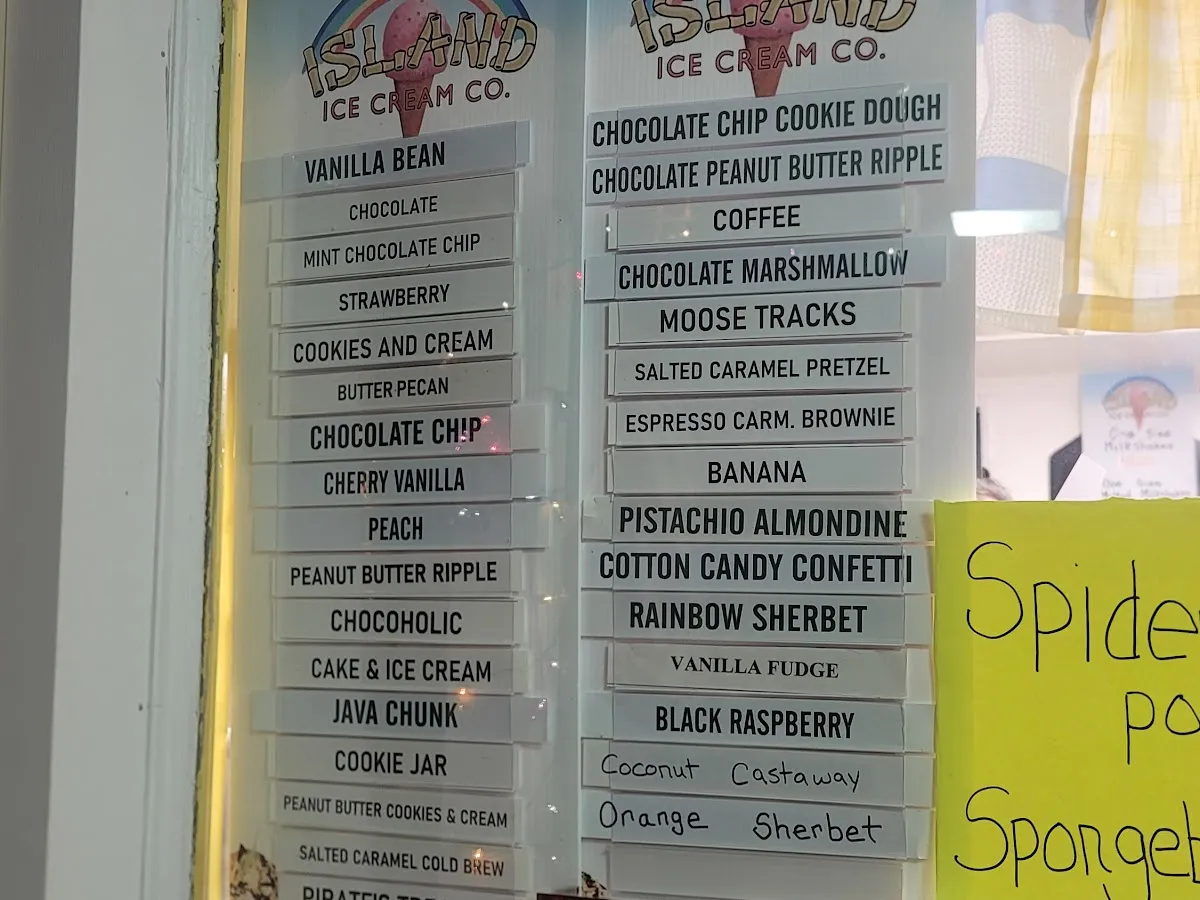 ISLAND
ICE CREAM CO.
VANILLA BEAN
CHOCOLATE
MINT CHOCOLATE CHIP
STRAWBERRY
COOKIES AND CREAM
BUTTER PECAN
CHOCOLATE CHIP
CHERRY VANILLA
PEACH
PEANUT BUTTER RIPPLE
CHOCOHOLIC
CAKE & ICE CREAM
JAVA CHUNK
COOKIE JAR
PEANUT BUTTER COOKIES & CREAM
SALTED CARAMEL COLD BREW
ISLAND
ICE CREAM CO.
CHOCOLATE CHIP COOKIE DOUGH
CHOCOLATE PEANUT BUTTER RIPPLE
COFFEE
CHOCOLATE MARSHMALLOW
MOOSE TRACKS
SALTED CARAMEL PRETZEL
ESPRESSO CARM. BROWNIE
BANANA
PISTACHIO ALMONDINE
COTTON CANDY CONFETTI
RAINBOW SHERBET
VANILLA FUDGE
BLACK RASPBERRY
Coconut Castaway
Orange Sherbet
One Size
Milkshakes
One Size